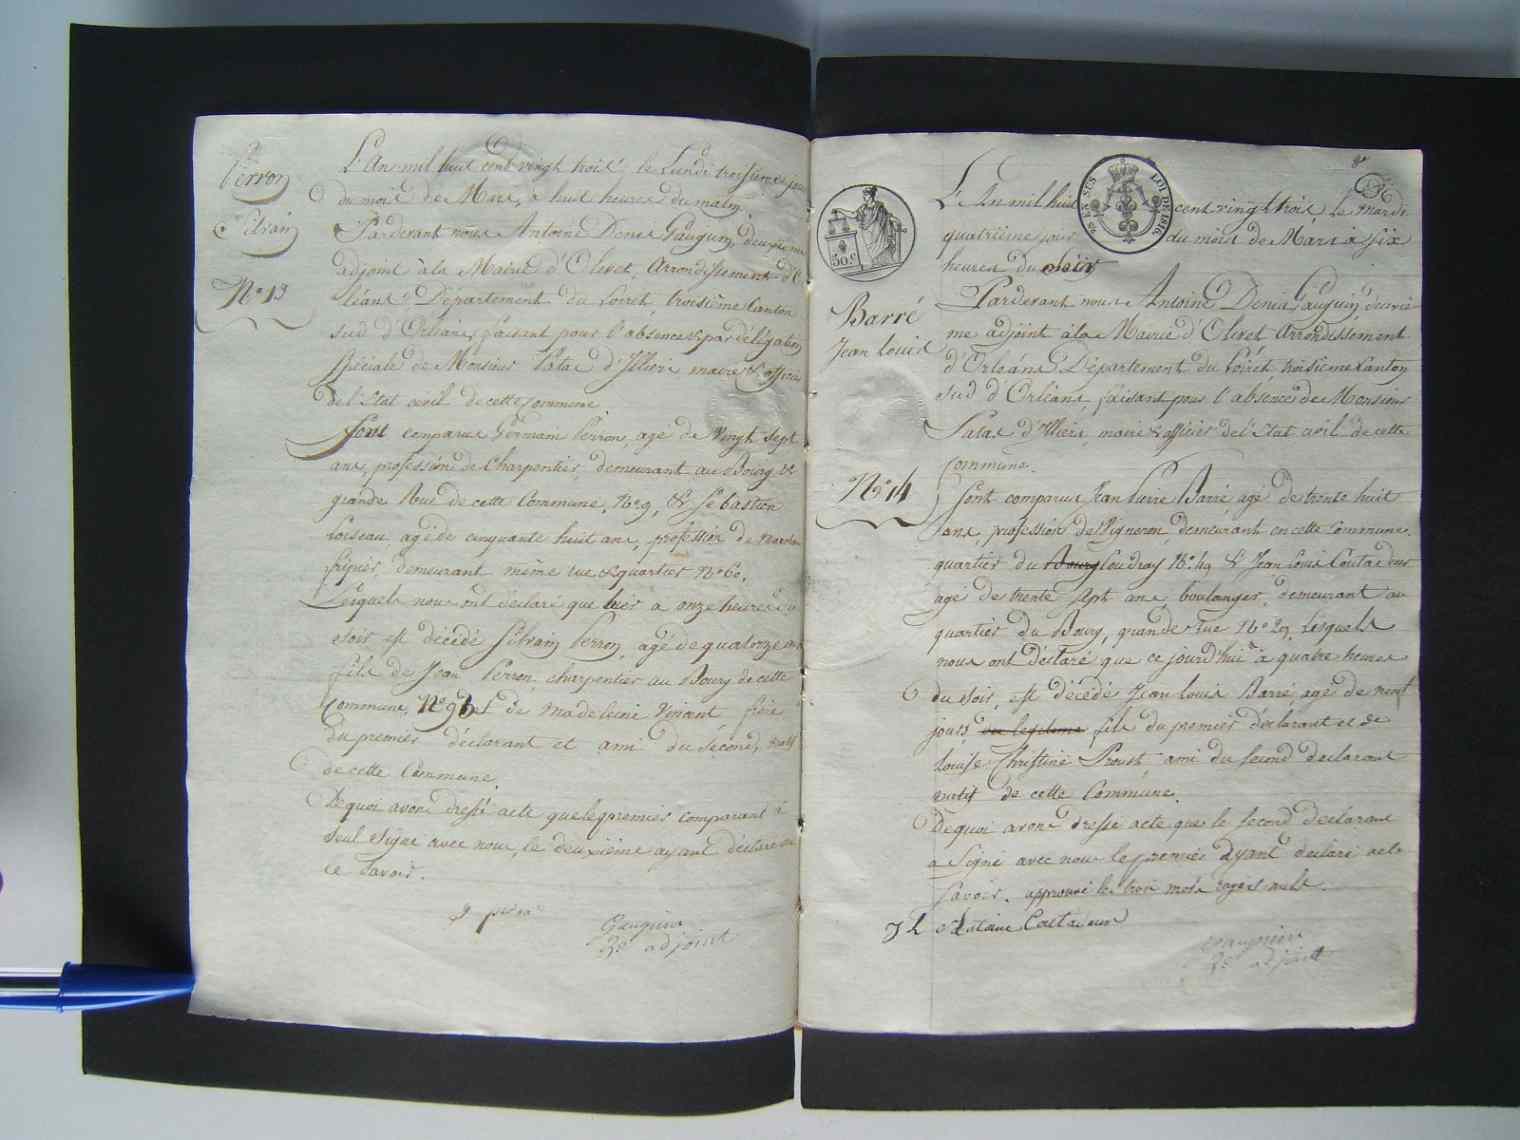 Perron
Silvain
N.° 13
L'An mil huit cent vingt trois le Lundi troisième jour
du mois de Mars, à huit heures du matin
Pardevant nous Antoine Denis Gauguin, deuxième
adjoint à la Mairie d'Olivet, Arrondissement d'Or
léans Département du Loiret, troisième Canton
sud d'Orléans, faisant pour l'absence & par délégation
spéciale de Monsieur Patas d'Illiers maire & officier
de l'Etat civil de cette Commune
Sont comparus Germain Perron, agé de vingt sept
ans, profession de Charpentier, demeurant au Bourg &
grande Rue de cette Commune, N.° 9, & Sébastien
Loiseau, agé de cinquante huit ans, profession de marchand
fripier, demeurant même rue & quartier N.° 60.
Lesquels nous ont déclaré que hier à onze heures du
soir est décédé Silvain Perron, agé de quatorze ans
fils de Jean Perron, charpentier au Bourg de cette
Commune, N.° 9 et de Madeleine Vinant frère
du premier déclarant et ami du second, natif
de cette Commune.
De quoi avons dressé acte que le premier comparant a
seul signé avec nous, le deuxième ayant déclaré ne
le savoir.
Gauguin
2e adjoint
50 c
EN SUS
LOI DE 1816
Barré
Jean Louis
N.° 14
L'An mil huit cent vingt trois le mardi
quatrième jour du mois de Mars à six
heures du soir
Pardevant nous Antoine Denis Gauguin, deuxiè
me adjoint à la Mairie d'Olivet Arrondissement
d'Orléans Département du Loiret troisième Canton
sud d'Orléans, faisant pour l'absence de Monsieur
Patas d'Illiers, maire & officier de l'Etat civil de cette
Commune.
Sont comparus Jean Pierre Barré agé de trente huit
ans, profession de Vigneron, demeurant en cette Commune,
quartier du Bourg Coudray N.° 49 & Jean Louis Coutadeur
agé de trente sept ans, boulanger, demeurant au
quartier du Bourg, grande rue N.° 29, Lesquels
nous ont déclaré que ce jourd'hui à quatre heures
du soir, est décédé Jean Louis Barré, agé de neuf
jours fils du premier déclarant et de
Louise Christine Proust ami du second déclarant
natif de cette Commune.
De quoi avons dressé acte que le second déclarant
a signé avec nous le premier ayant déclaré ne le
savoir. approuvé les trois mots rayés nuls.
Gauguin
2e adjoint